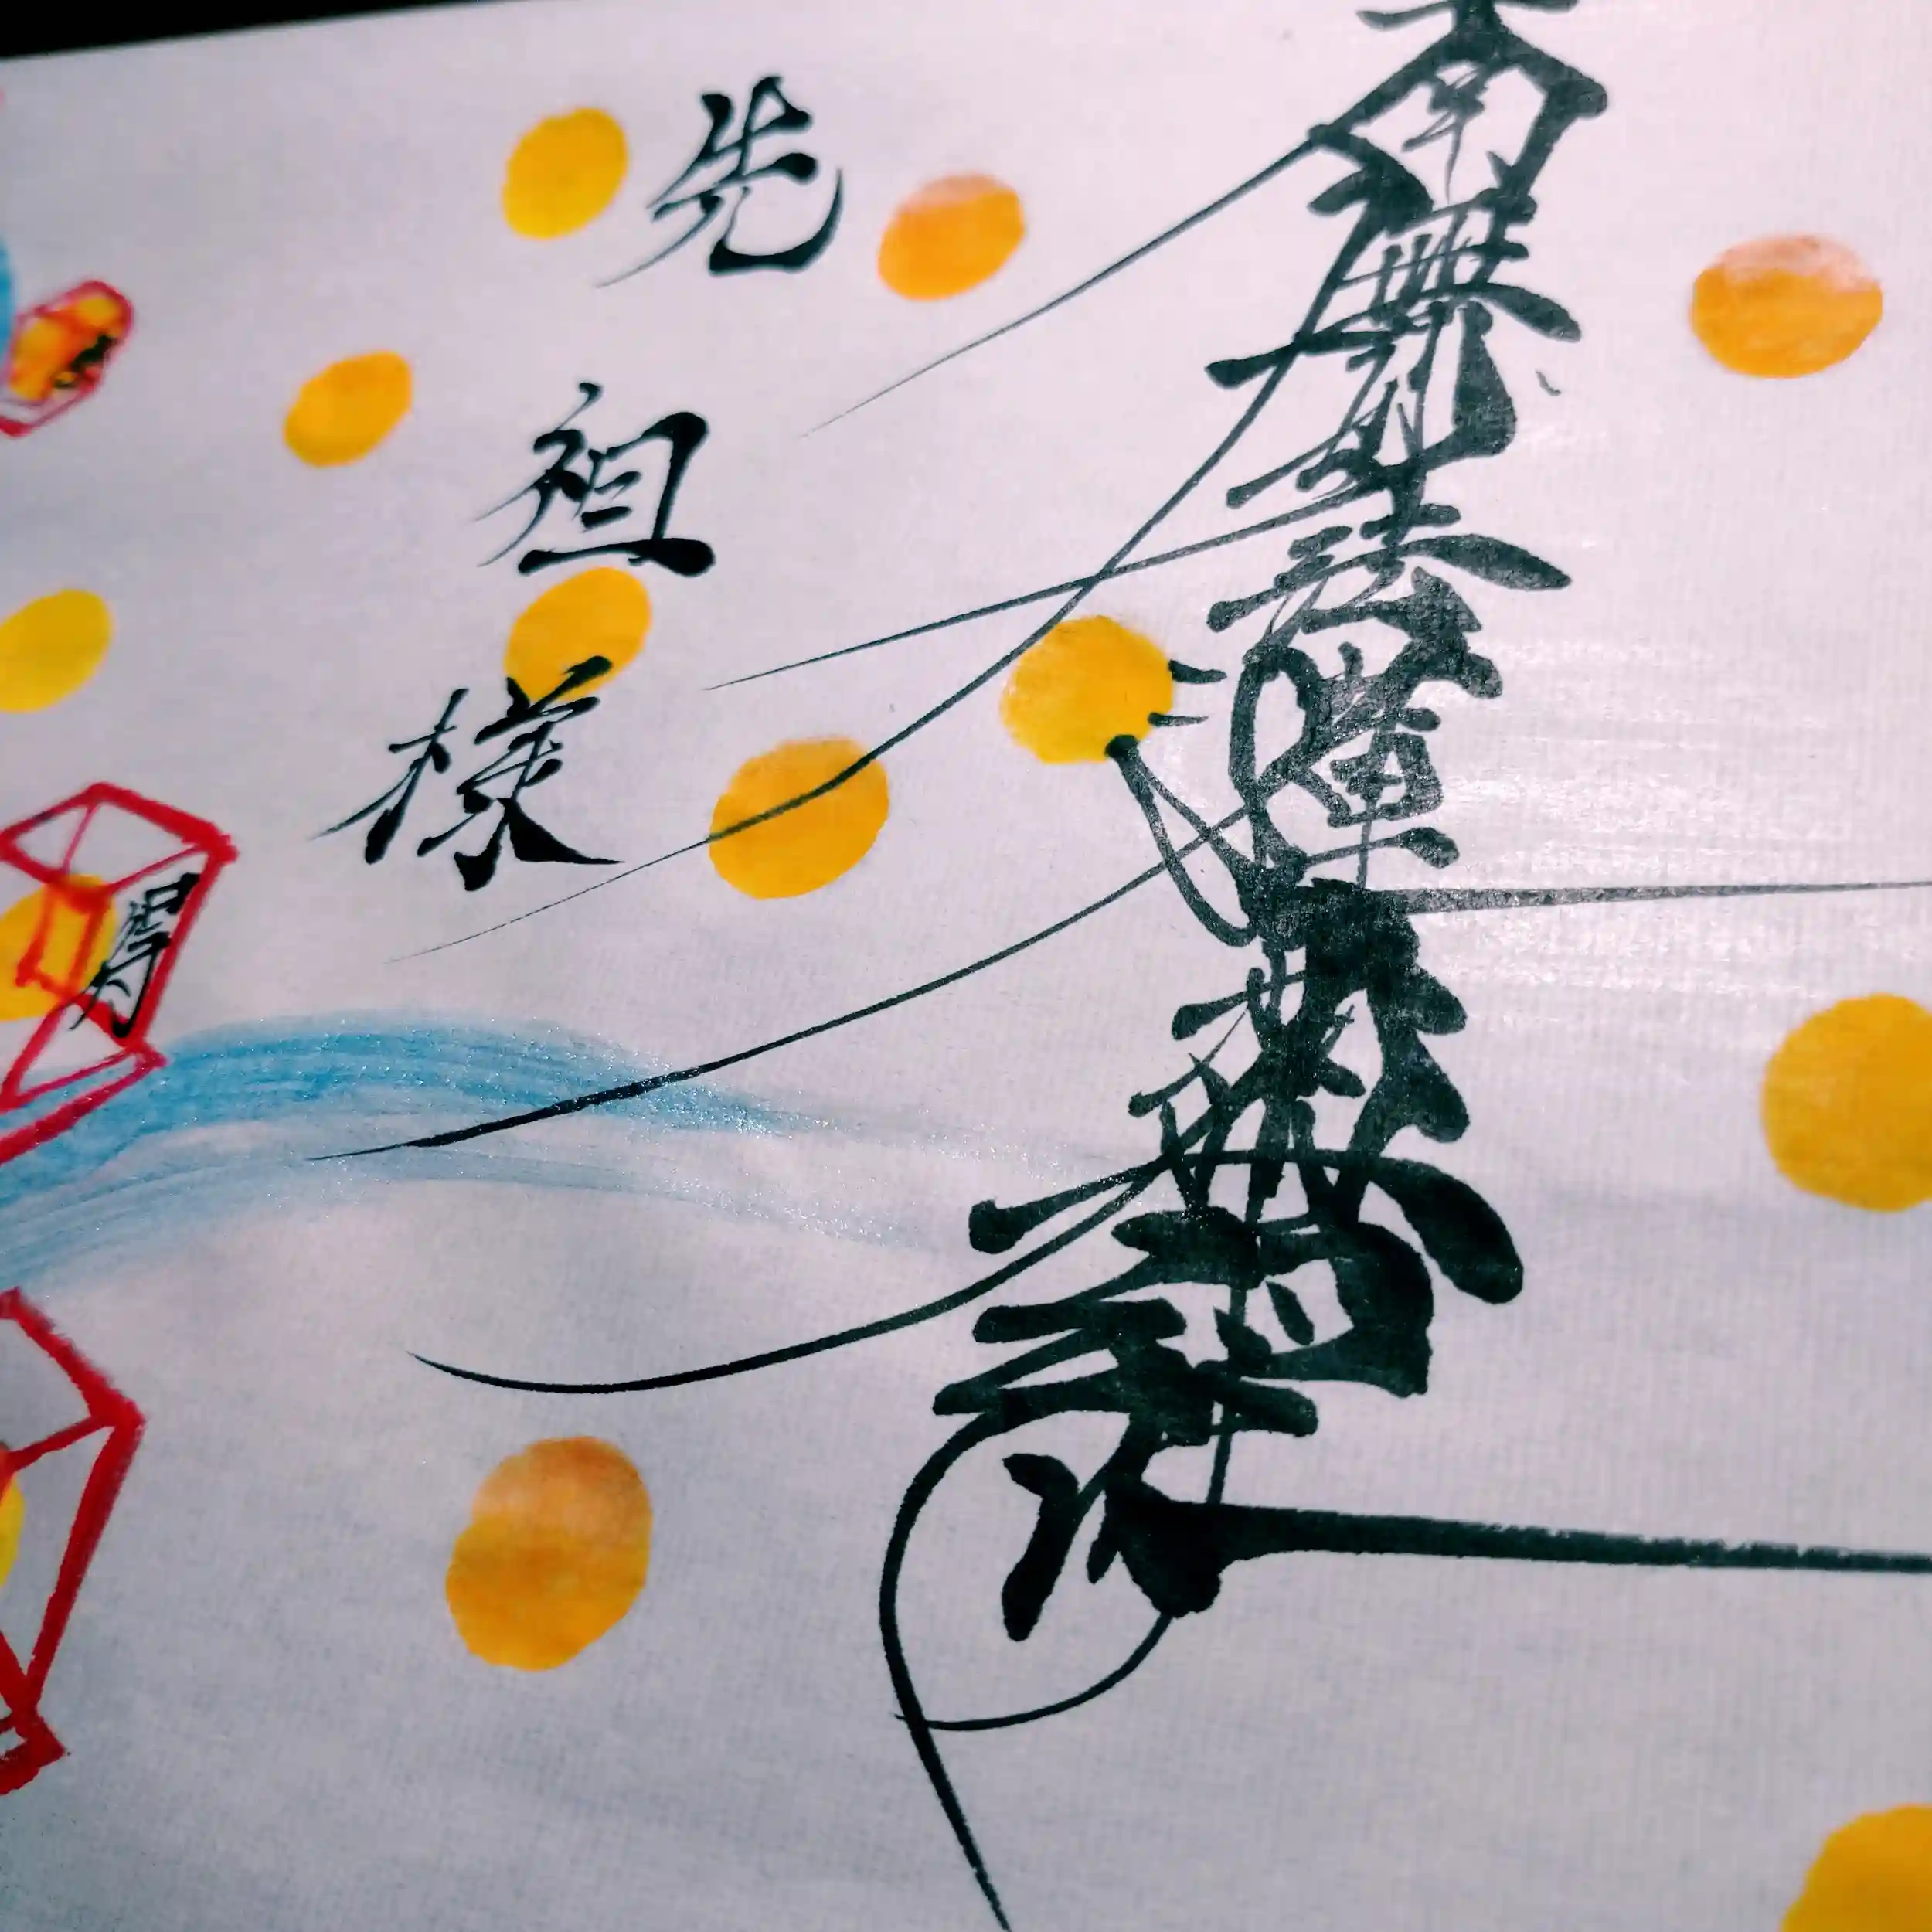 南無妙法蓮華経
先祖様